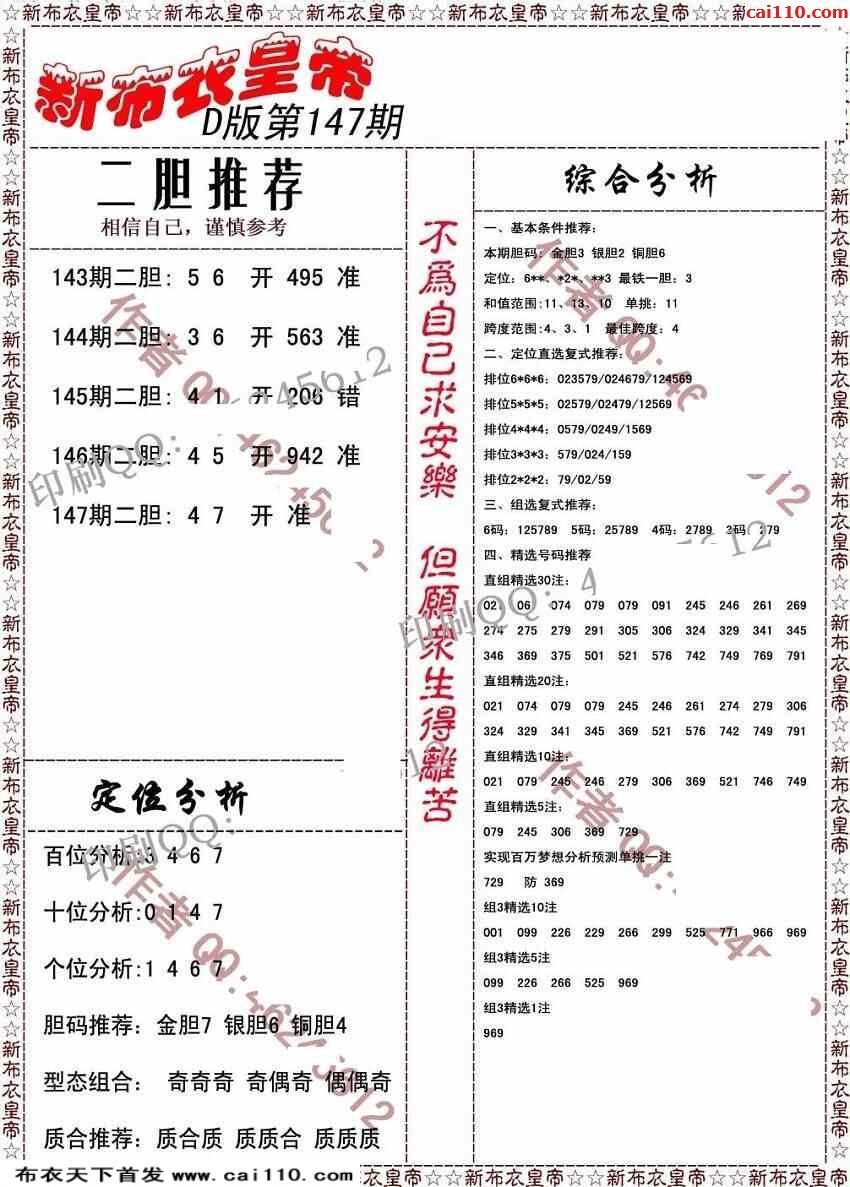 ☆新布衣皇帝☆☆新布衣皇帝☆☆新布衣皇帝☆☆新布衣皇帝☆☆新布衣皇帝☆☆新
cai110.com
新布衣皇帝
D版第147期
二胆推荐
相信自己，谨慎参考
143期二胆: 5 6 开 495 准
144期二胆: 3 6 开 563 准
145期二胆: 4 1 开 206 错
146期二胆: 4 5 开 942 准
147期二胆: 4 7 开 准
定位分析
百位分析:3 4 6 7
十位分析:0 1 4 7
个位分析:1 4 6 7
胆码推荐: 金胆7 银胆6 铜胆4
型态组合: 奇奇奇 奇偶奇 偶偶奇
质合推荐: 质合质 质质合 质质质
不爲自己求安樂 但願眾生得離苦
综合分析
一、基本条件推荐:
本期胆码: 金胆3 银胆2 铜胆6
定位: 6**、*2*、**3 最铁一胆: 3
和值范围:11、13、10 单挑: 11
跨度范围:4、3、1 最佳跨度: 4
二、定位直选复式推荐:
排位6*6*6: 023579/024679/124569
排位5*5*5: 02579/02479/12569
排位4*4*4: 0579/0249/1569
排位3*3*3: 579/024/159
排位2*2*2: 79/02/59
三、组选复式推荐:
6码: 125789 5码: 25789 4码: 2789 3码: 279
四、精选号码推荐
直组精选30注:
021 06 074 079 079 091 245 246 261 269
274 275 279 291 305 306 324 329 341 345
346 369 375 501 521 576 742 749 769 791
直组精选20注:
021 074 079 079 245 246 261 274 279 306
324 329 341 345 369 521 576 742 749 791
直组精选10注:
021 079 245 246 279 306 369 521 746 749
直组精选5注:
079 245 306 369 729
实现百万梦想分析预测单挑一注
729 防 369
组3精选10注
001 099 226 229 266 299 525 771 966 969
组3精选5注
099 226 266 525 969
组3精选1注
969
布衣天下首发 www.cai110.com
衣皇帝☆☆新布衣皇帝☆☆新布衣皇帝☆☆新布衣皇帝☆